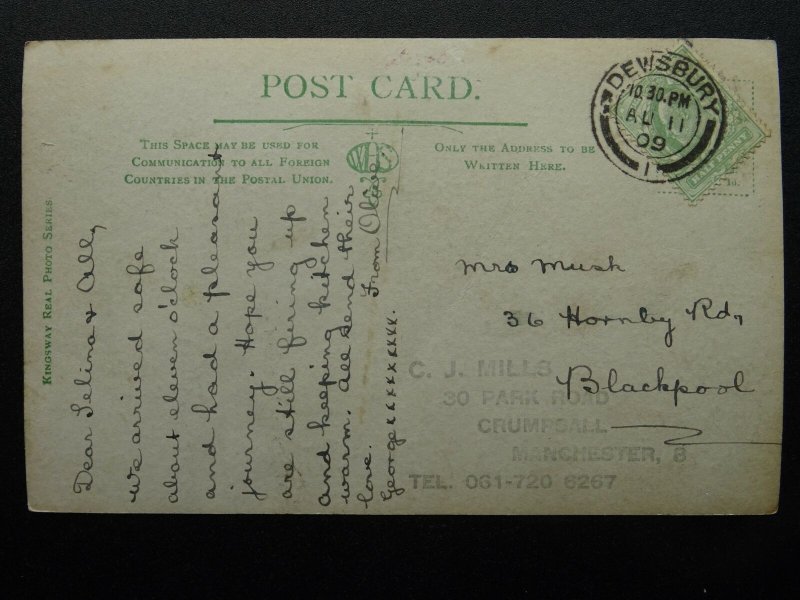 POST CARD.
THIS SPACE MAY BE USED FOR
COMMUNICATION TO ALL FOREIGN
COUNTRIES IN THE POSTAL UNION.
ONLY THE ADDRESS TO BE
WRITTEN HERE.
KINGSWAY REAL PHOTO SERIES.
DEWSBURY
10.30.PM
AU 11
09
HALF PENNY
Dear Selina & All,
We arrived safe
about eleven o'clock
and had a pleasant
journey. Hope you
are still firing up
and keeping kitchen
warm. All send their
love. From Olive.
George xxxxxxxxx.
Mrs Musk
36 Hornby Rd,
Blackpool
C. J. MILLS
30 PARK ROAD
CRUMPSALL
MANCHESTER, 8
TEL. 061-720 6267